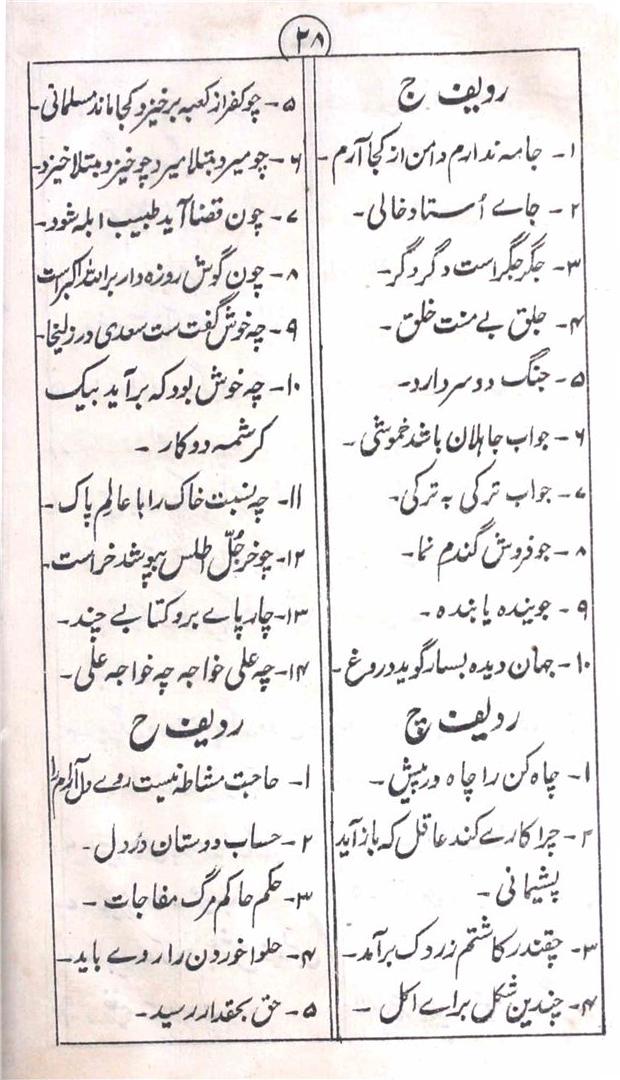 ۲۸
ردیف ج
۱- جامہ ندارم دامن از کجا آرم-
۲- جاے اُستاد خالی-
۳- جگر جگر است دگر دگر-
۴- جلق بے منت خلق-
۵- جنگ دو سر دارد-
۶- جواب جاہلان باشد خموشی-
۷- جواب ترکی بہ ترکی-
۸- جو فروش گندم نما-
۹- جویندہ یابندہ-
۱۰- جہان دیدہ بسیار گوید دروغ-
ردیف چ
۱- چاہ کن را چاہ در پیش-
۲- چرا کارے کند عاقل کہ باز آید
پشیمانی-
۳- چقندر کاشتم زردک برآمد-
۴- چندین شکل براے اکل-
۵- چو کفر از کعبہ برخیزد کجا ماند مسلمانی-
۶- چو میرد مبتلا میرد چو خیزد مبتلا خیزد-
۷- چون قضا آید طبیب ابلہ شود-
۸- چون گوش روزہ دار بر اللہ اکبر است
۹- چہ خوش گفت ست سعدی در زلیخا-
۱۰- چہ خوش بود کہ برآید بیک
کرشمہ دو کار-
۱۱- چہ نسبت خاک را با عالمِ پاک-
۱۲- چو خر جُلّ اطلس بپوشد خر است-
۱۳- چارپاے برو کتابے چند-
۱۴- چہ علی خواجہ چہ خواجہ علی-
ردیف ح
۱- حاجت مشاطہ نیست روے دل آرام را
۲- حساب دوستان در دل-
۳- حکم حاکم مرگ مفاجات-
۴- حلوا خوردن را روے باید-
۵- حق بحقدار رسید-